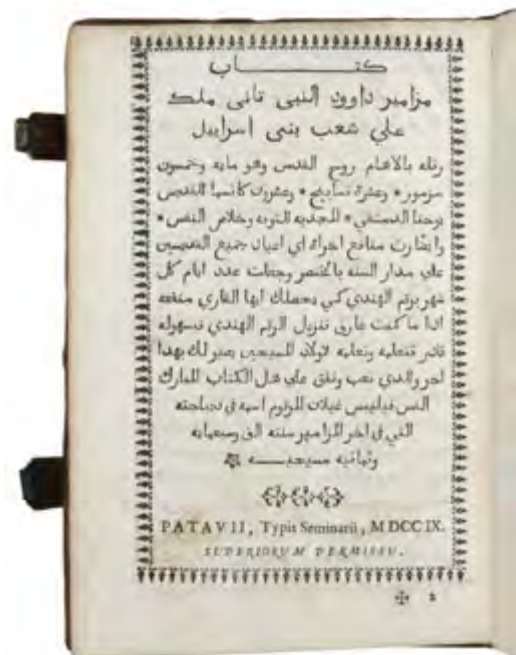 كتاب
مزامير داوود النبي تاني ملك
علي شعب بني اسراييل
رتله بالاهام روح القدس وهو مايه وخمسون
مزمور * وعشرة تسابيح * وعشرون كانسما القديس
يوحنا الدمشقي * المجديه للتوبه وخلاص النفس *
وايضا رت منافع اخراة اي اعيان جميع القديسين
علي مدار السنه بالمختصر وجعلت عدد ايام كل
شهر برقم الهندي كي يحصلك ايها القاري منفعه
اذا ما كنت عارف تنزيل الرقم الهندي بسهوله
قادر تتعلمه وتعلمه لاولاد المسيحيين يصير لك بهدا
اجر والدي تعب ونفق علي هدا الكتاب المبارك
القس فيليبس غيلان المرقوم اسمه في ديباجته
التي في اخر المزامير سنة الف وسبعمايه
وثمانيه مسيحيه
PATAVII, Typis Seminarii, MDCCIX.
SUPERIORUM PERMISSU.
✠ 2